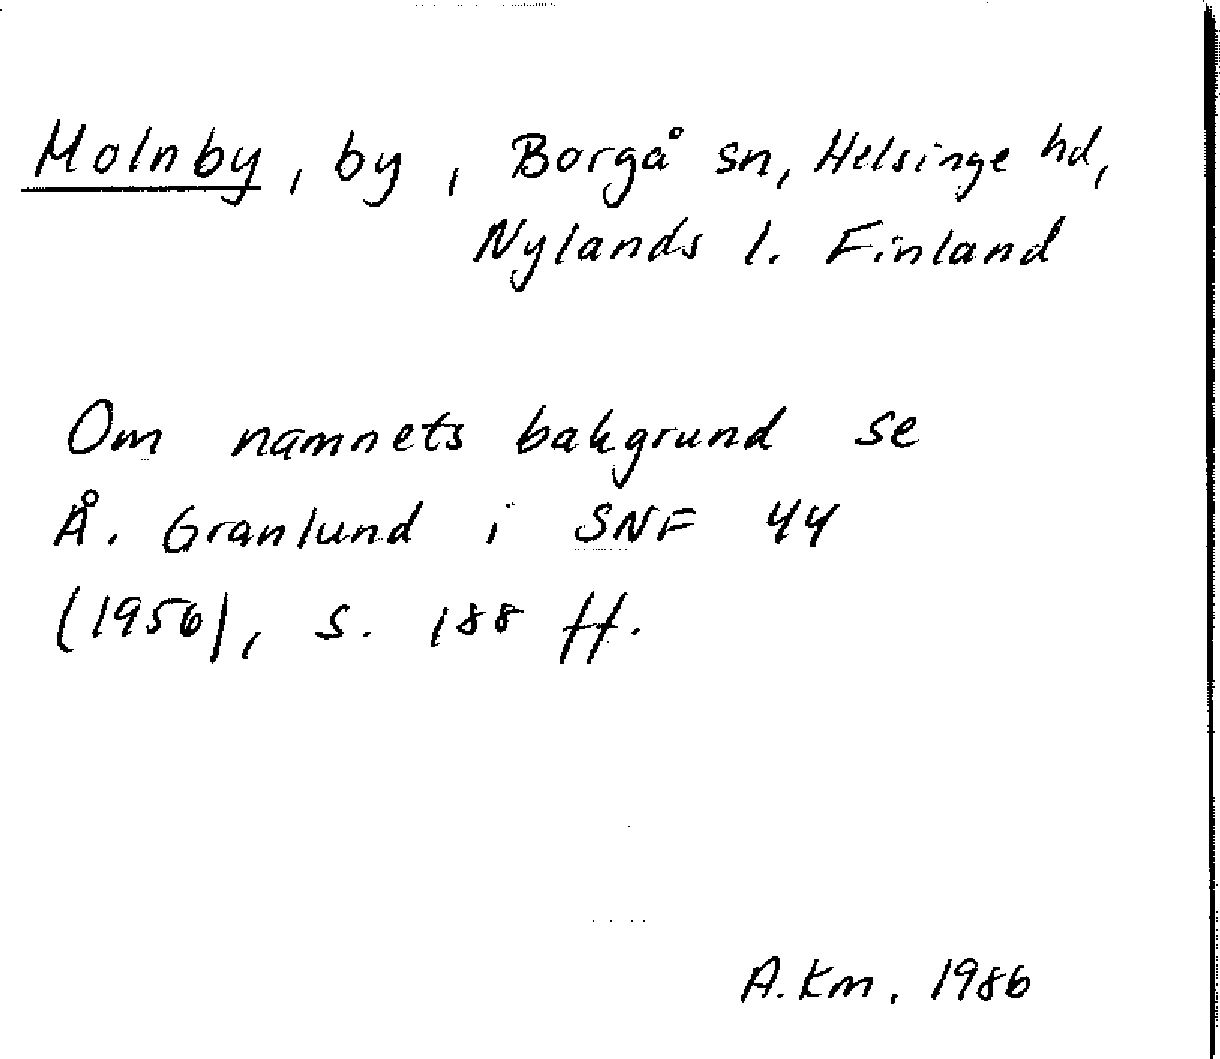 Molnby, by, Borgå sn, Helsinge hd,
Nylands l. Finland
Om namnets bakgrund se
Å. Granlund i SNF 44
(1956), s. 188 ff.
A.Km. 1986